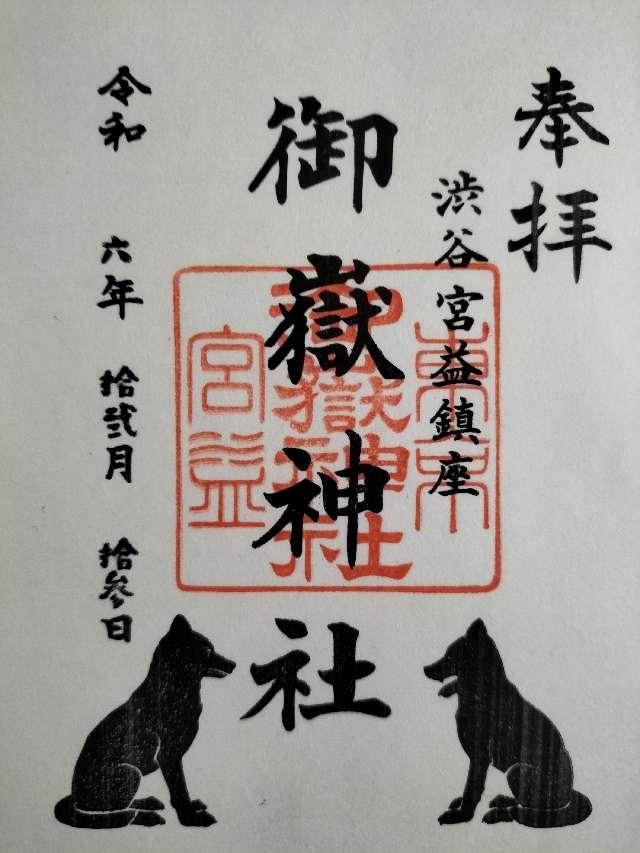 奉拝
渋谷宮益鎮座
御嶽神社
東京
御嶽神社
宮益
令和 六年 拾弐月 拾参日